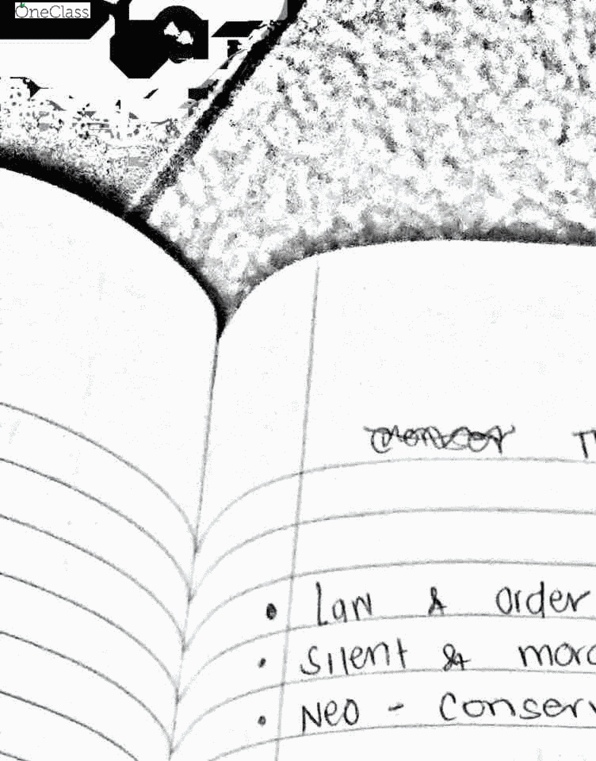 OneClass
• Law & order
• Silent & mora
• Neo - Conserv